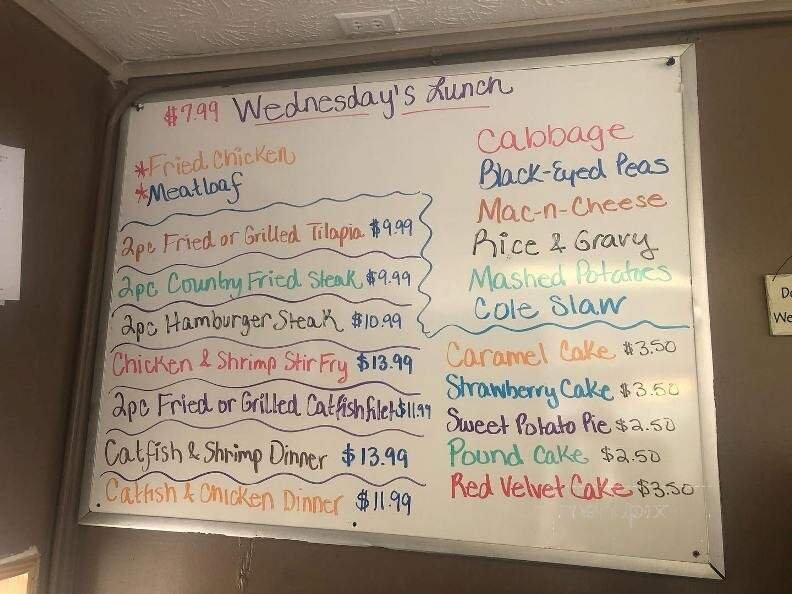 $7.99 Wednesday's Lunch
*Fried Chicken
*Meatloaf
2pc Fried or Grilled Tilapia $9.99
2pc Country Fried Steak $9.99
2pc Hamburger Steak $10.99
Chicken & Shrimp Stir Fry $13.99
2pc Fried or Grilled Catfish filet $11.99
Catfish & Shrimp Dinner $13.99
Catfish & Chicken Dinner $11.99
Cabbage
Black-Eyed Peas
Mac-n-Cheese
Rice & Gravy
Mashed Potatoes
Cole Slaw
Caramel Cake $3.50
Strawberry Cake $3.50
Sweet Potato Pie $2.50
Pound Cake $2.50
Red Velvet Cake $3.50